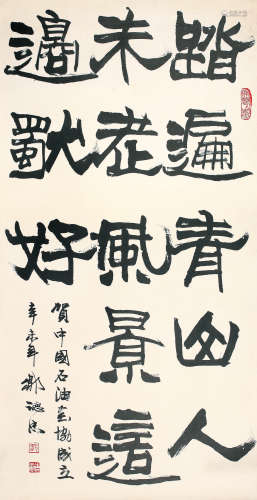 踏遍青山人
未老風景這
邊獨好
賀中國石油協成立
辛未年鄒德忠